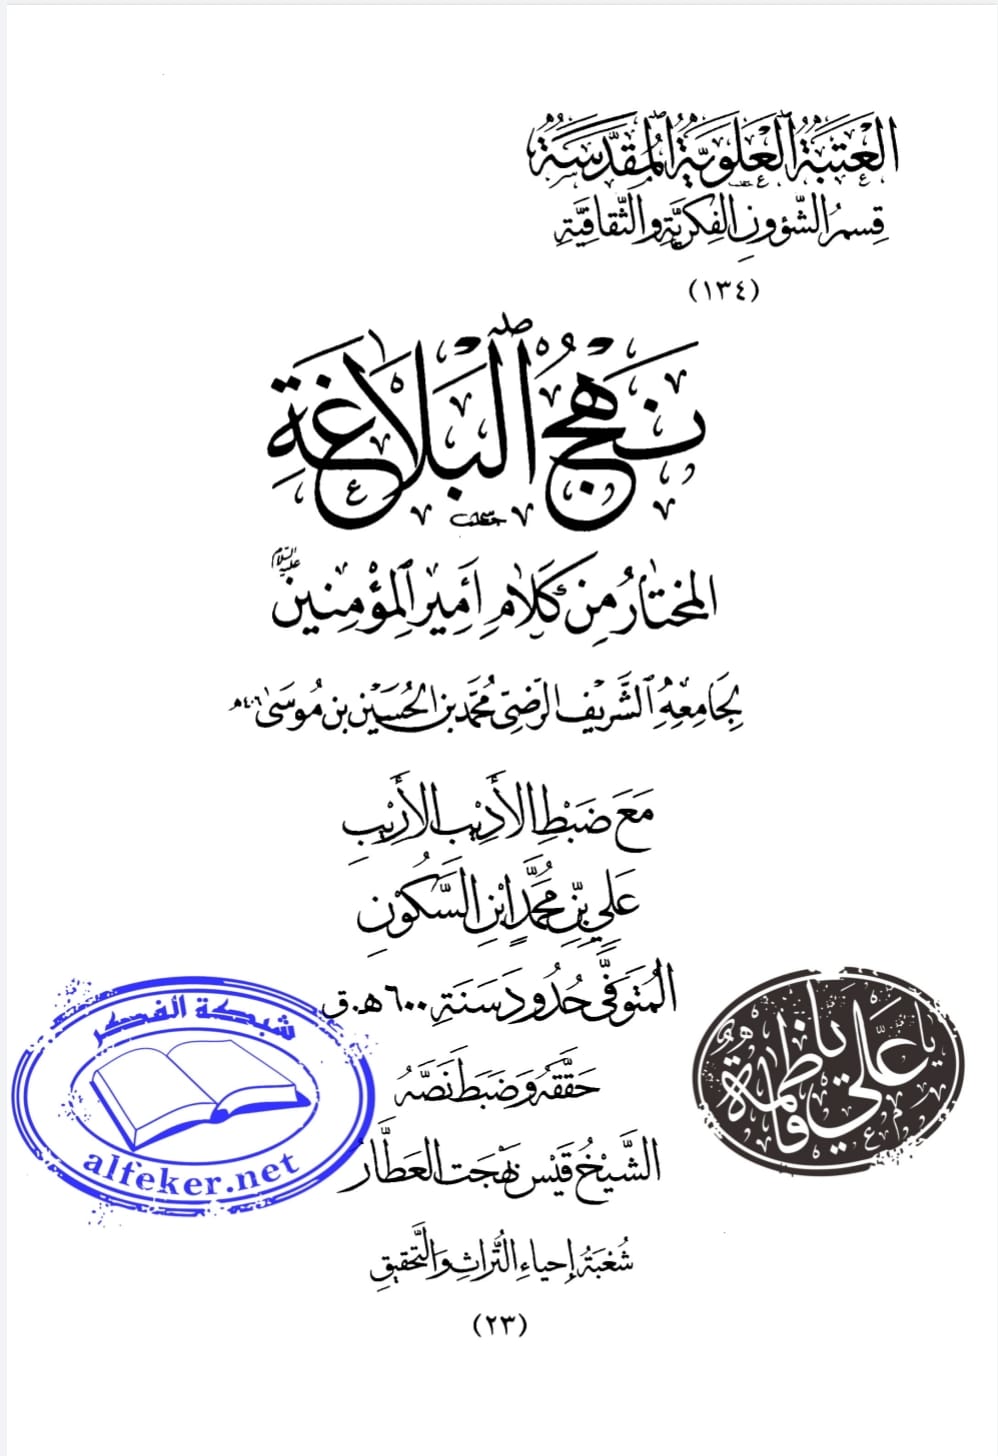 العتبة العلوية المقدسة
قسم الشؤون الفكرية والثقافية
(١٣٤)
نهج البلاغة
المختار من كلام أمير المؤمنين عليه السلام
لجامعه الشريف الرضي محمد بن الحسين بن موسى ٤٠٦هـ
مع ضبط الأديب الأريب
علي بن محمد ابن السكون
المتوفى حدود سنة ٦٠٠ هـ.ق
حققه وضبط نصه
الشيخ قيس بهجت العطار
شعبة إحياء التراث والتحقيق
(٢٣)
شبكة الفكر
alfeker.net
يا علي
يا فاطمة